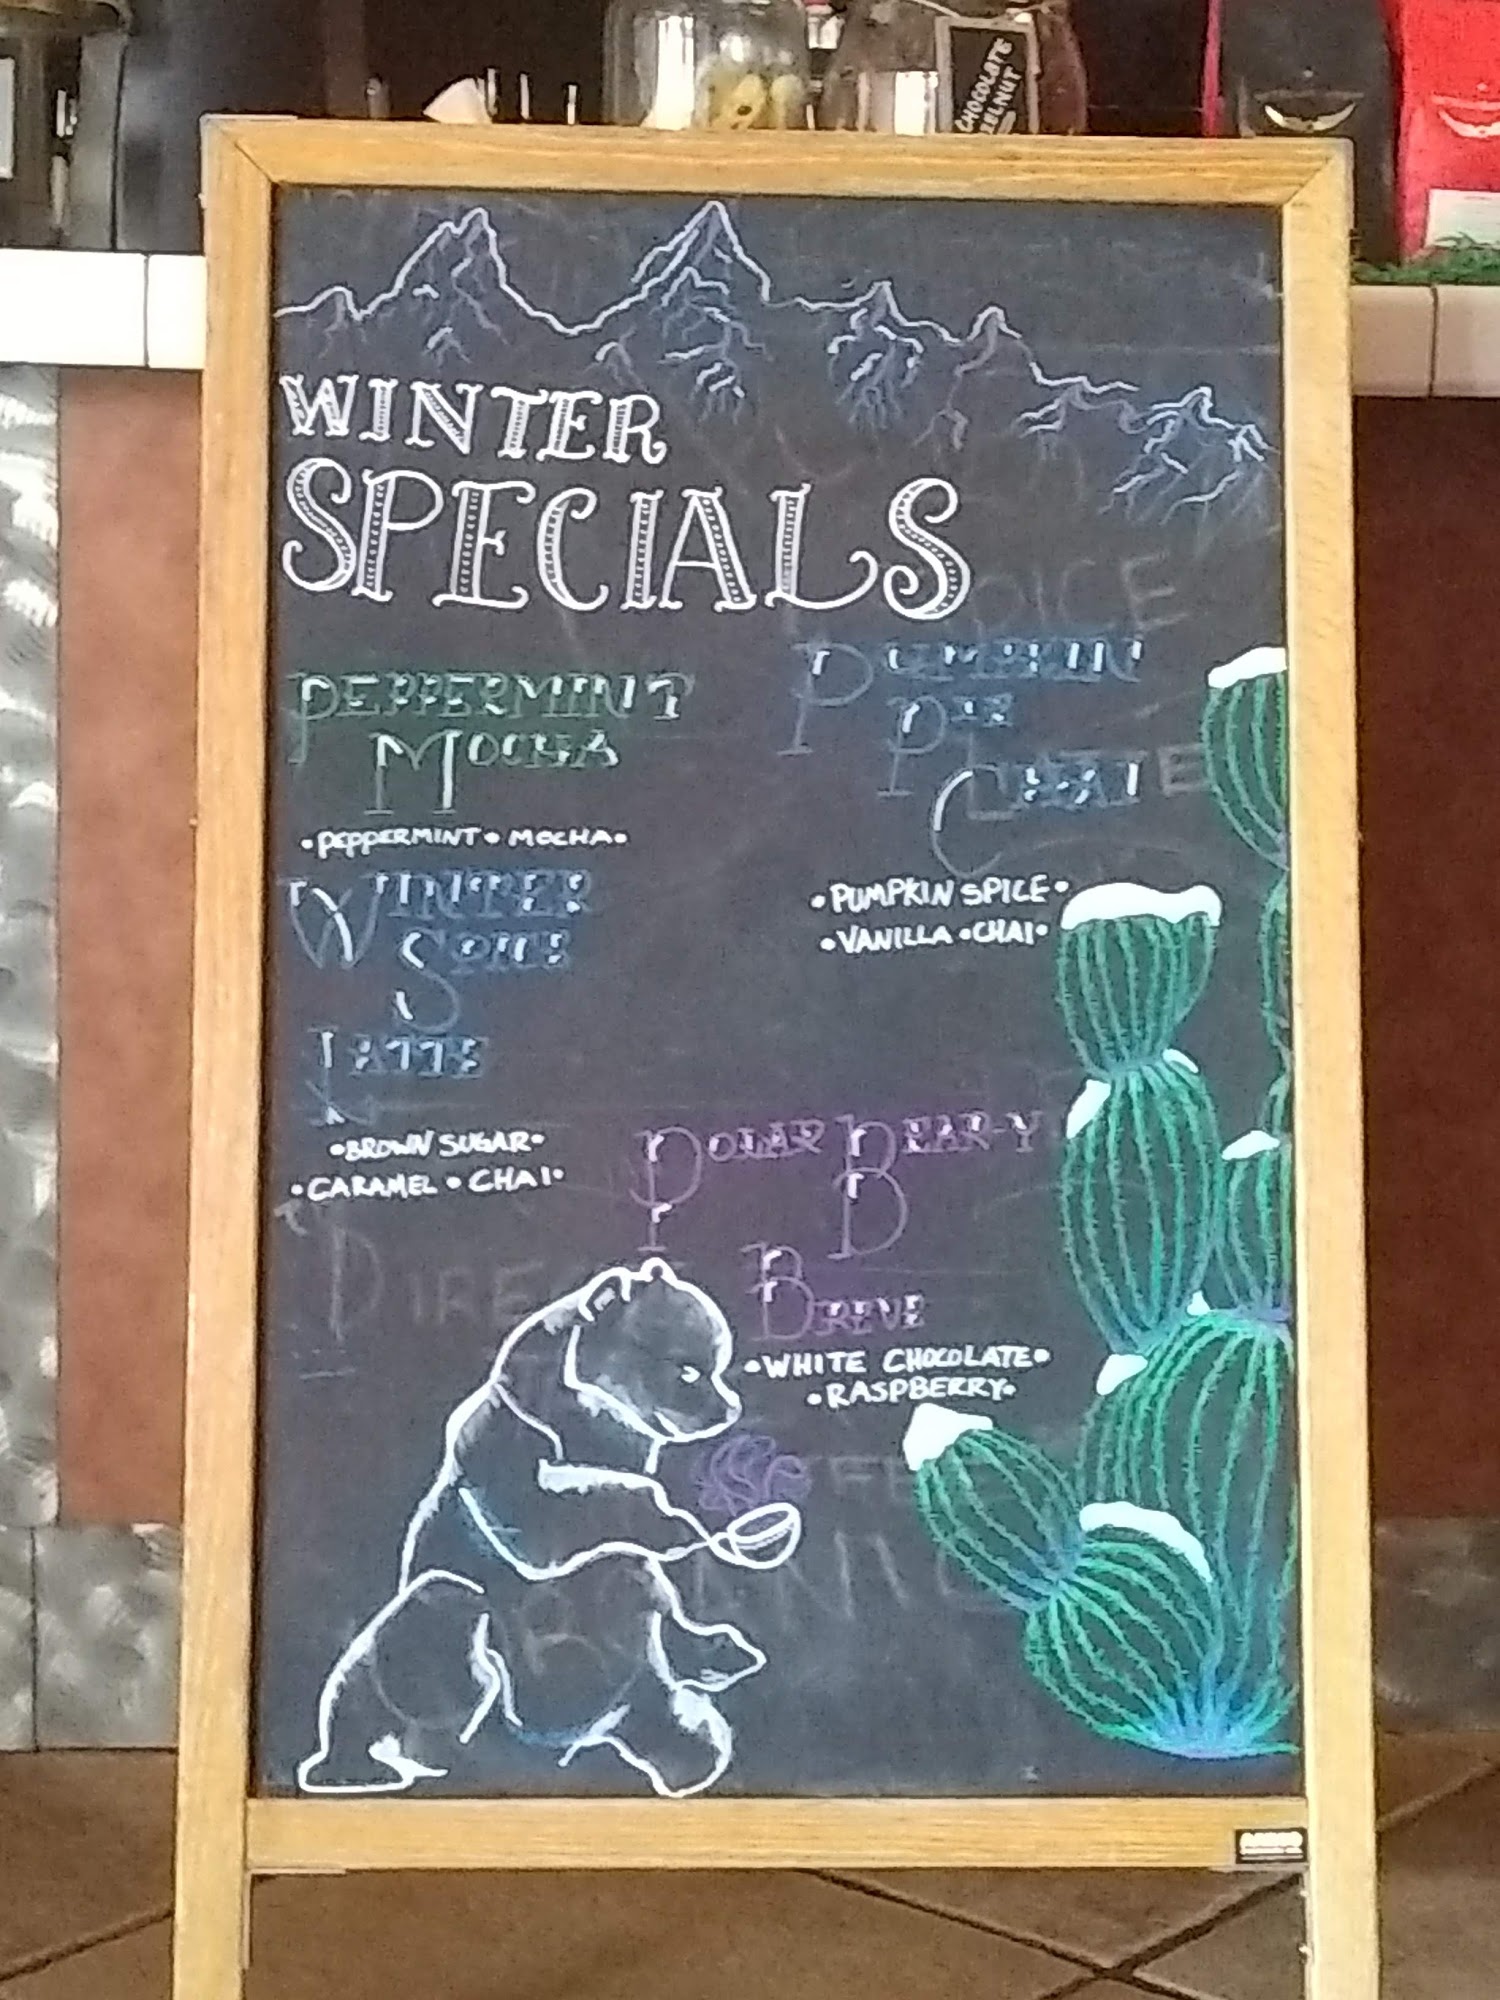 CHOCOLATE
WINTER
SPECIALS
PEPPERMINT
MOCHA
•PEPPERMINT • MOCHA•
WINTER
SPICE
LATTE
•BROWN SUGAR•
•CARAMEL • CHAI•
PUMPKIN
PIE
CHAI
•PUMPKIN SPICE•
•VANILLA •CHAI•
POLAR BEAR-Y
BREVE
•WHITE CHOCOLATE•
•RASPBERRY•